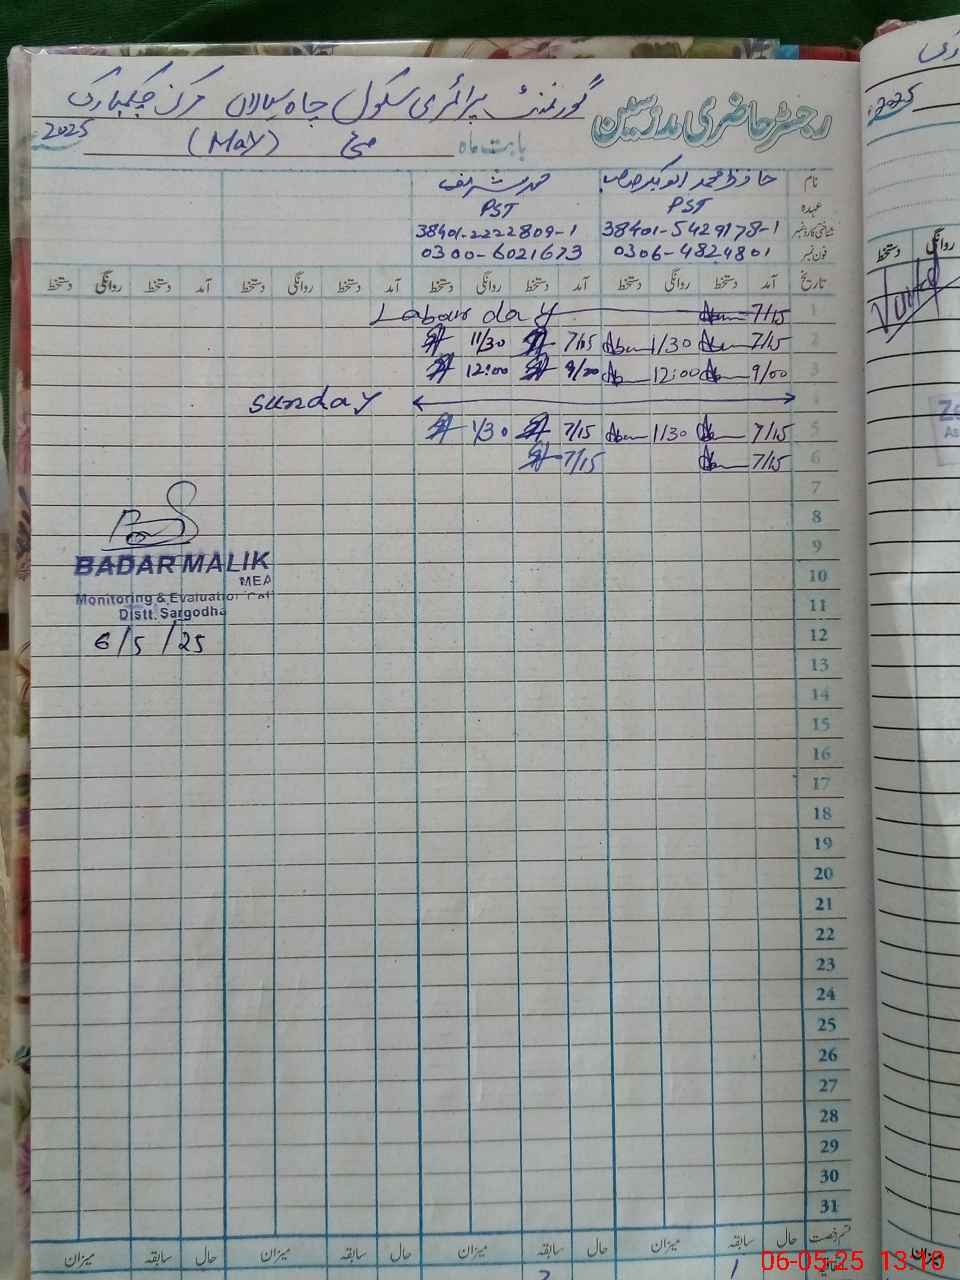 رجسٹر حاضری مدرسین گورنمنٹ پرائمری سکول چاہ سیالاں مرکز
بابت ماہ مئی (May) 2025
نام حافظ محمد ابوبکر صاحب محمد شریف
عہدہ PST PST
شناختی کارڈ نمبر 38401-5429178-1 38401-2222809-1
فون نمبر 0306-4824801 0300-6021673
تاریخ آمد دستخط روانگی دستخط آمد دستخط روانگی دستخط آمد دستخط روانگی دستخط آمد دستخط روانگی دستخط
1 7/15 Labour day
2 7/15 1/30 7/15 11/30
3 9/00 12:00 9/00 12:00
4 Sunday
5 7/15 1/30 7/15 1/30
6 7/15 7/15
7
8
9
10
11
12
13
14
15
16
17
18
19
20
21
22
23
24
25
26
27
28
29
30
31
BADAR MALIK
MEA
Monitoring & Evaluation Cell
Distt. Sargodha
6/5/25
قسم رخصت حال سابقہ میزان حال سابقہ میزان حال سابقہ میزان حال سابقہ میزان
2025
روانگی دستخط
میزان
06-05-25 13:10